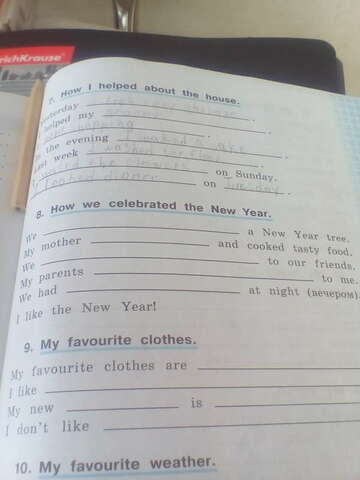 richKrause®
7. How I helped about the house.
Yesterday
helped my
the evening I
Last week I washed the
on Sunday.
cooked dinner on Tuesday.
8. How we celebrated the New Year.
We a New Year tree.
My mother and cooked tasty food.
We to our friends.
My parents to me.
We had at night (вечером).
I like the New Year!
9. My favourite clothes.
My favourite clothes are
I like
My new is
I don't like
10. My favourite weather.